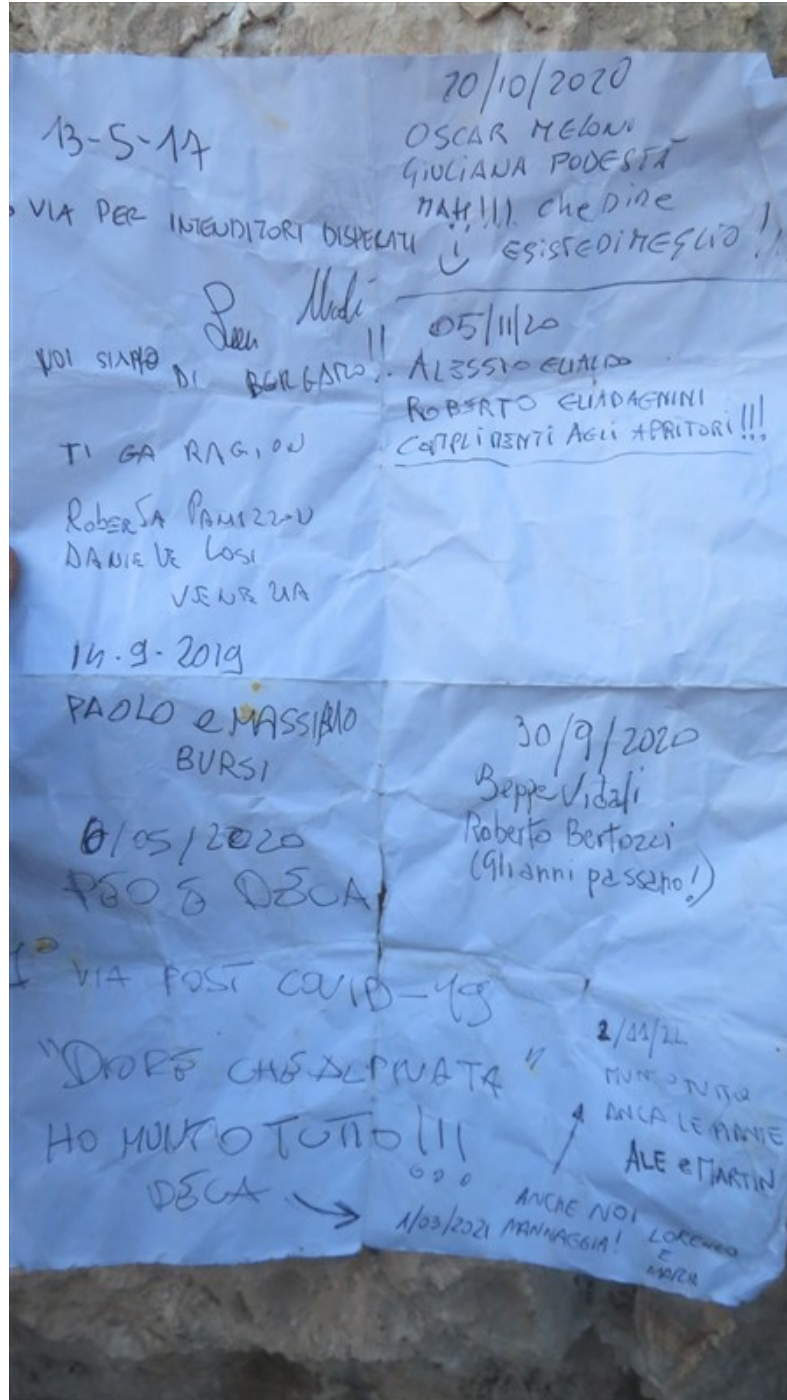 13-5-17
VIA PER INTENDITORI DISPERATI
NOI SIAMO DI BERGAMO!!
TI GA RAGION
ROBERTA
DANIELE LOSI
VENEZIA
14.9.2019
PAOLO e MASSIMO
BURSI
6/05/2020
PEO E DECA
1° VIA POST COVID-19
"DIORE CHE ALPINATA"
HO MUNTO TUTTO!!!
DECA
20/10/2020
OSCAR MELONI
GIULIANA PODESTÀ
MAH!!!! che DIRE
ESISTE DI MEGLIO!!
05/11/20
ALESSIO
ROBERTO GUADAGNINI
COMPLIMENTI AGLI APRITORI!!!
30/9/2020
Beppe Vidali
Roberto Bertozzi
(Gli anni passano!)
MUNTO TUTTO
ANCA LE PIANTE
ALE e MARTIN
ANCHE NOI
1/03/2021 MANNAGGIA!
LORENZO
E